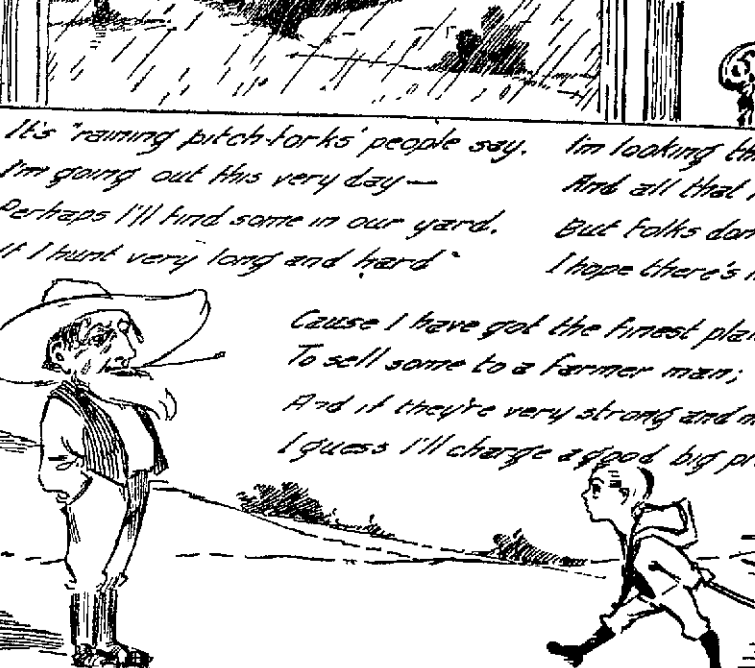 It's "raining pitch-forks' people say.
I'm going out this very day—
Perhaps I'll find some in our yard.
If I hunt very long and hard"
I'm looking
And all that
But folks
I hope there's
Cause I have got the finest
To sell some to a farmer man;
And if they're very strong and
I guess I'll charge a good big